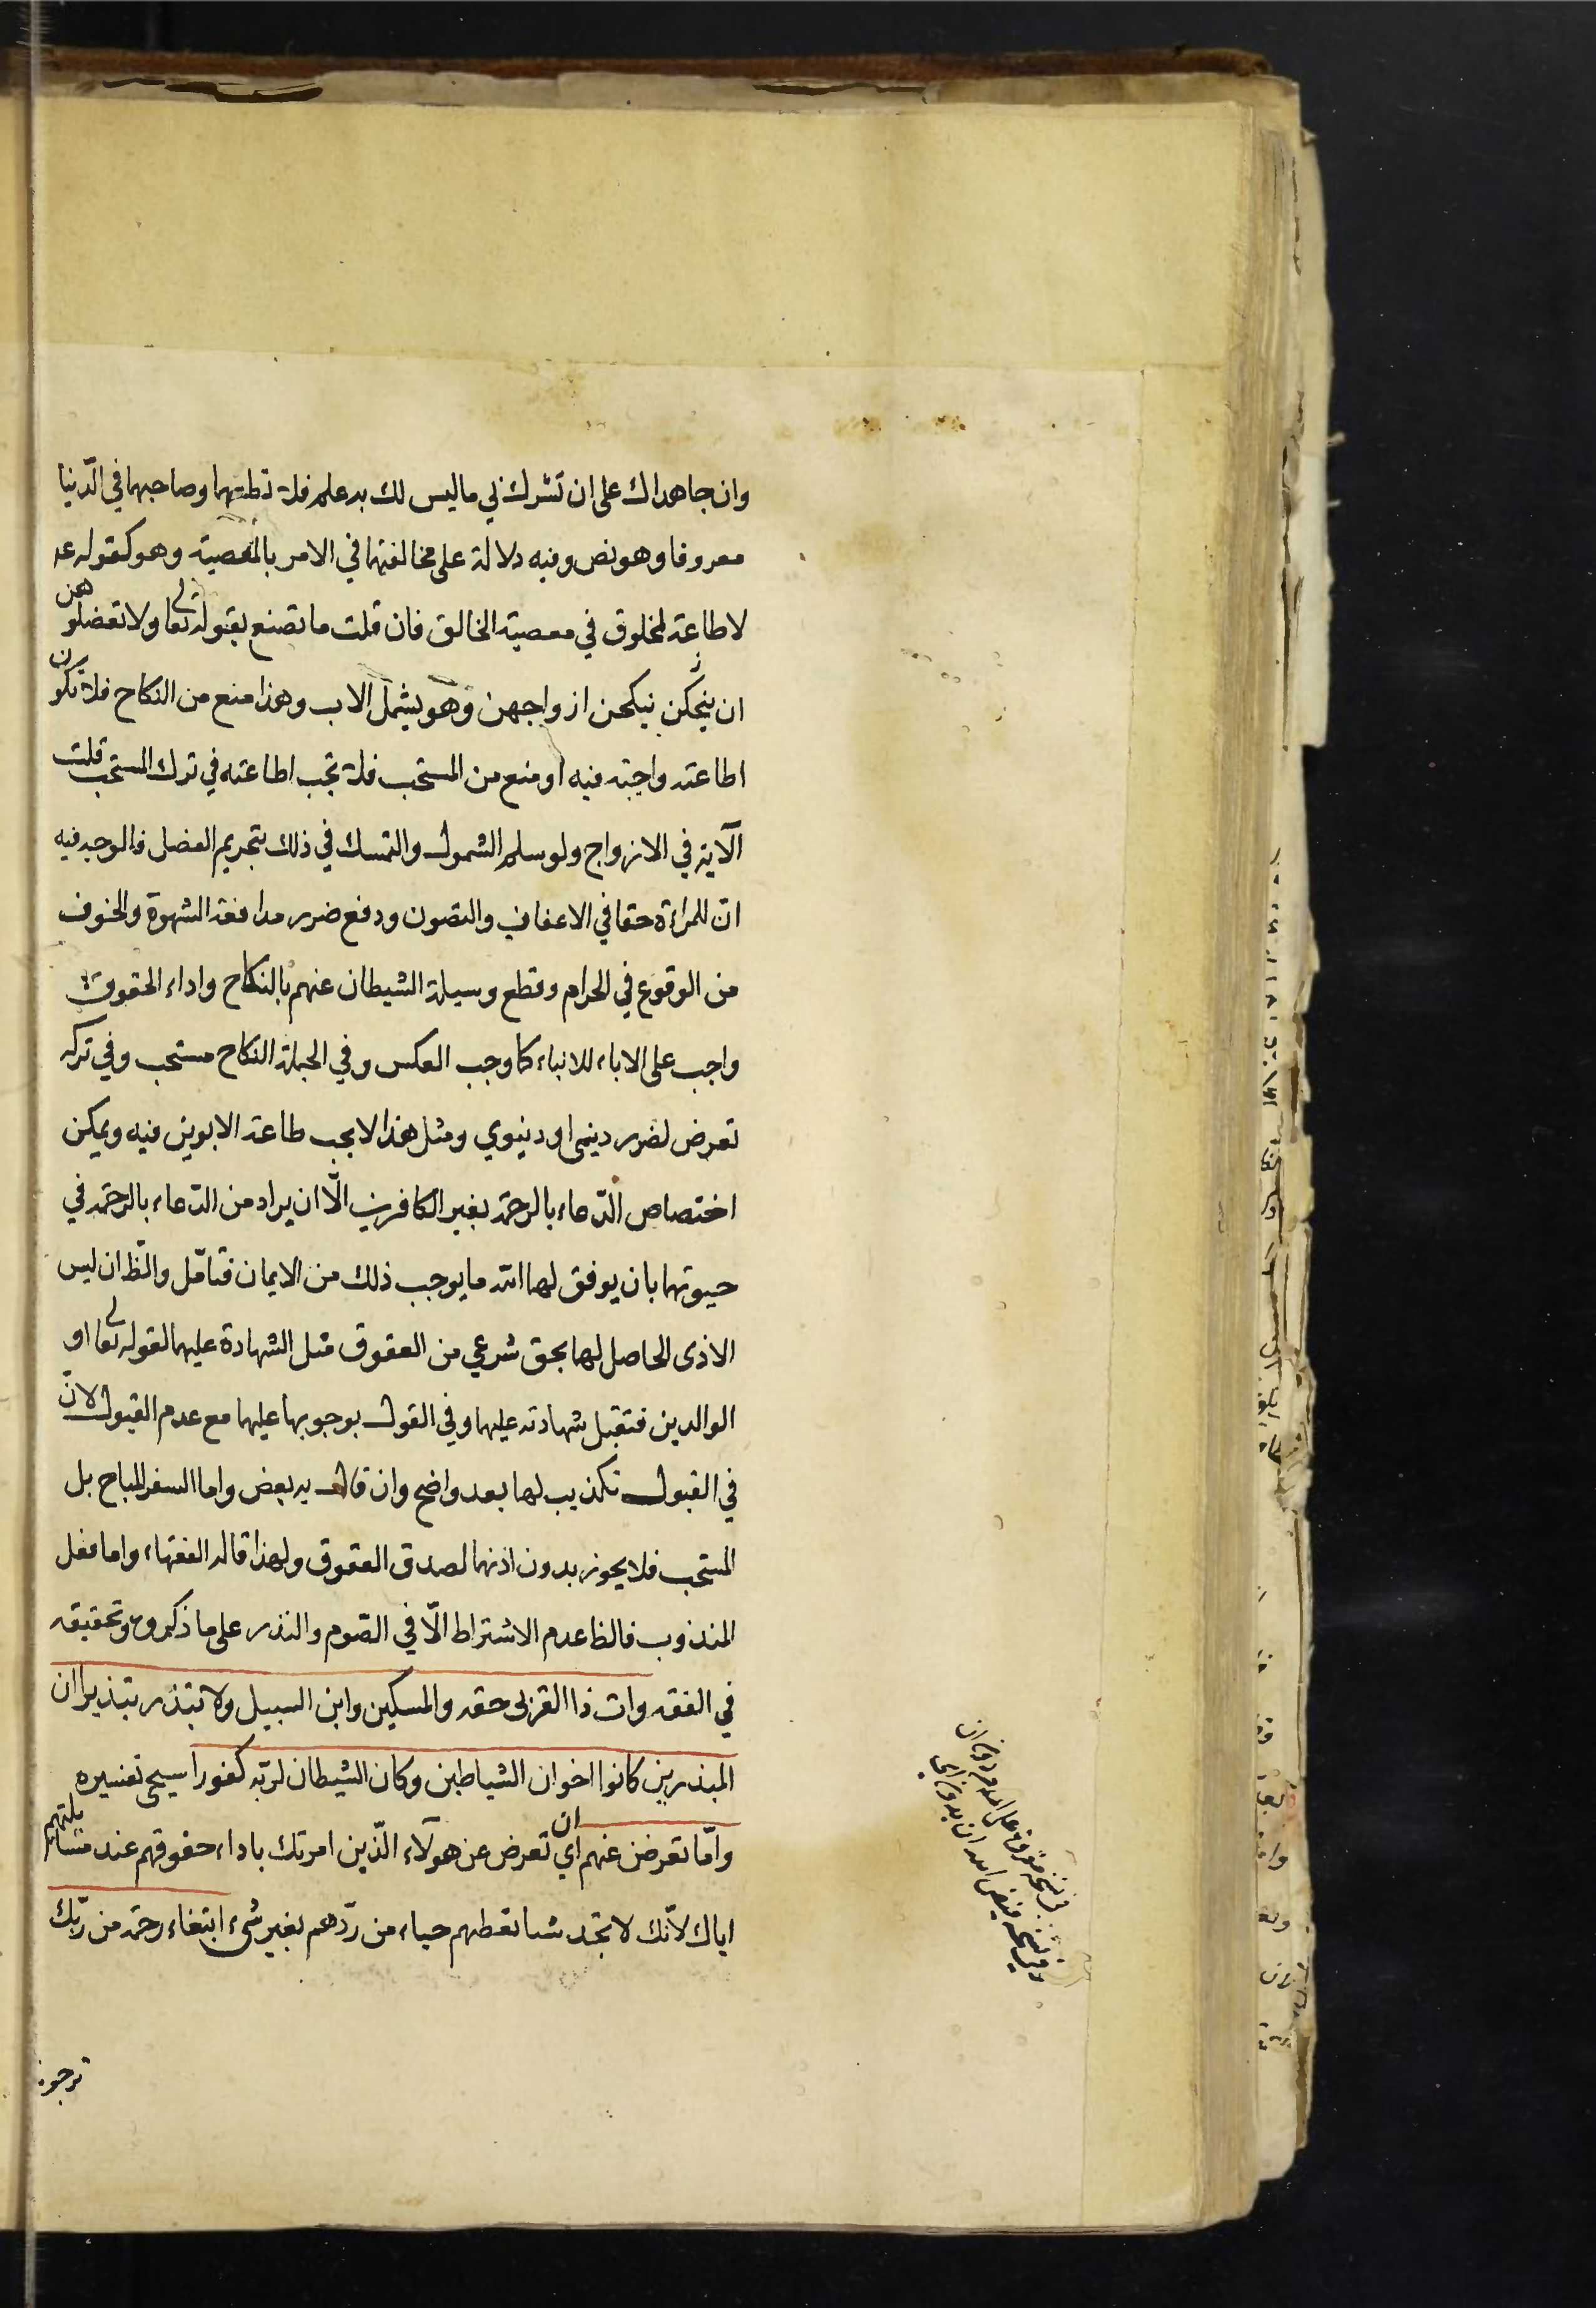 وان جاهداك على ان تشرك بي ما ليس لك به علم فلا تطعهما وصاحبهما في الدّنيا
معروفا وهو نص وفيه دلالة على مخالفتهما في الامر بالمعصية وهو كقوله عـ
لا طاعة لمخلوق في معصية الخالق فان قلت ما تصنع بقوله تعالى ولا تعضلوهن
ان ينحكن نيكحن ازواجهن وهو يشمل الاب وهذا منع من النكاح فلا يكون
اطاعته واجبة فيه او منع من المستحب فلا تجب اطاعته في ترك المستحب قلت
الآية في الازواج ولو سلم الشمول والتمسك في ذلك بتحريم العضل فالوجه فيه
انّ للمراة حقا في الاعفاف والتصون ودفع ضرر مدافعة الشهوة والخوف
من الوقوع في الحرام وقطع وسيلة الشيطان عنهم بالنكاح واداء الحقوق
واجب على الاباء للابناء كما وجب العكس وفي الجملة النكاح مستحب وفي تركه
تعرض لضرر دينى او دنيوي ومثل هذا لا يجب طاعة الابوين فيه ويمكن
اختصاص الدّعاء بالرحمة بغير الكافرين الّا ان يراد من الدّعاء بالرحمة في
حيوتهما بان يوفق لهما الله ما يوجب ذلك من الايمان فتامّل والظّ ان ليس
الاذى الحاصل لهما بحق شرعي من العقوق مثل الشهادة عليهما لقوله تعالى او
الوالدين فتقبل شهادته عليهما وفي القول بوجوبها عليهما مع عدم القبول لانّ
في القبول تكذيب لهما بعد واضح وان قال به بعض واما السفر المباح بل
المستحب فلا يجوز بدون اذنهما لصدق العقوق ولهذا قاله الفقهاء واما فعل
المندوب فالظا عدم الاشتراط الّا في الصّوم والنذر على ما ذكروه وتحقيقه
في الفقه وات ذا القربى حقه والمسكين وابن السبيل ولا تبذر تبذيرا ان
المبذرين كانوا اخوان الشياطين وكان الشيطان لربّه كفورا سيجى تفسيره
وامّا تعرضن عنهم اي ان تعرض عن هولآء الّذين امرتك باداء حقوقهم عند مسايلتهم
اياك لانّك لا تجد شيا تعطهم حياء من ردّهم بغير شىء ابتغاء رحمة من ربّك
ترجوه